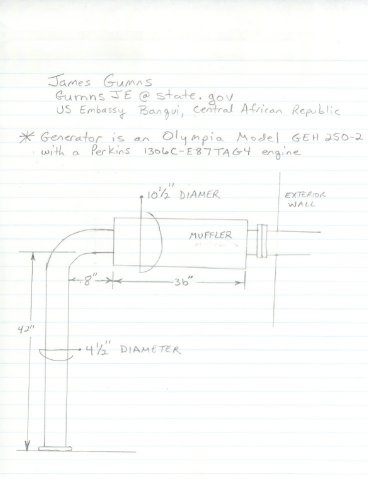 James Gumns
GumnsJE@state.gov
US Embassy Bangui, Central African Republic
* Generator is an Olympia Model GEH 250-2
with a Perkins 1306C-E87TAG4 engine
10½" DIAMER
EXTERIOR
WALL
MUFFLER
8"
36"
42"
4½" DIAMETER